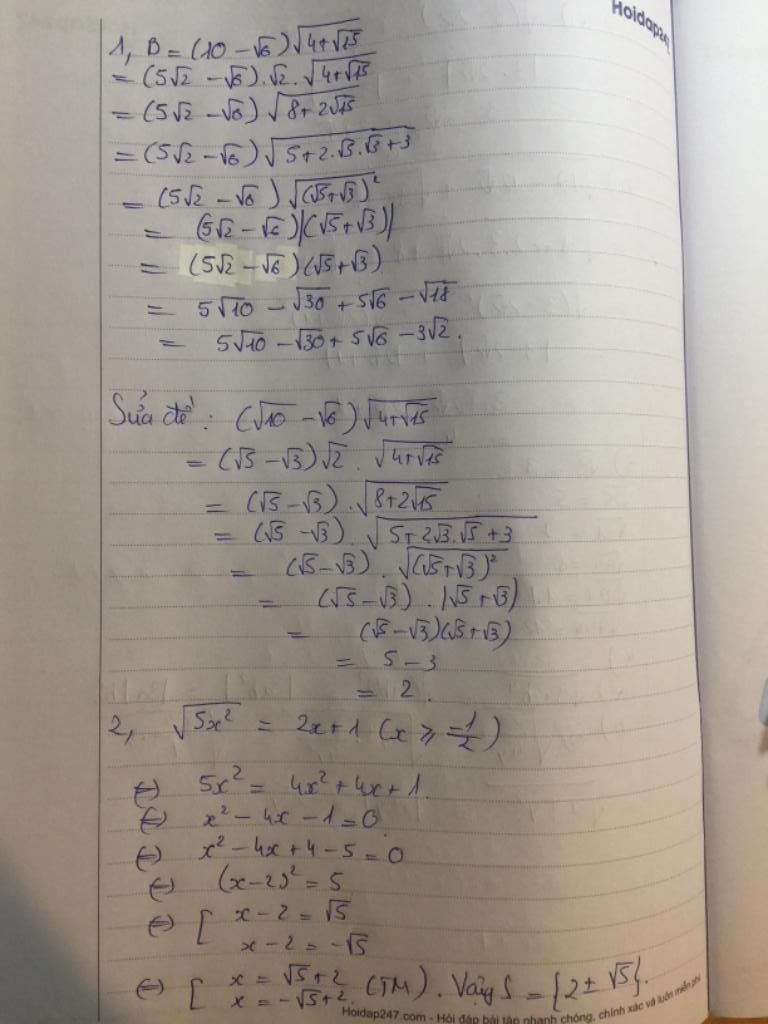 Hoidap247
1, B = (10 - √6)√(4+√15)
= (5√2 - √6).√2.√(4+√15)
= (5√2 - √6)√(8+2√15)
= (5√2 - √6)√(5+2.√5.√3+3)
= (5√2 - √6)√((√5+√3)²)
= (5√2 - √6)|(√5+√3)|
= (5√2 - √6)(√5+√3)
= 5√10 - √30 + 5√6 - √18
= 5√10 - √30 + 5√6 - 3√2.
Sửa đề: (√10 - √6)√(4+√15)
= (√5 - √3)√2.√(4+√15)
= (√5 - √3).√(8+2√15)
= (√5 - √3).√(5+2√3.√5+3)
= (√5 - √3).√((√5+√3)²)
= (√5 - √3).|√5+√3|
= (√5 - √3)(√5+√3)
= 5 - 3
= 2.
2, √(5x²) = 2x+1 (x ⩾ -1/2)
⇔ 5x² = 4x²+4x+1
⇔ x² - 4x - 1 = 0
⇔ x² - 4x + 4 - 5 = 0
⇔ (x-2)² = 5
⇔ [ x - 2 = √5
x - 2 = -√5
⇔ [ x = √5+2 (TM). Vậy S = {2 ± √5}.
x = -√5+2
Hoidap247.com - Hỏi đáp bài tập nhanh chóng, chính xác và luôn miễn phí